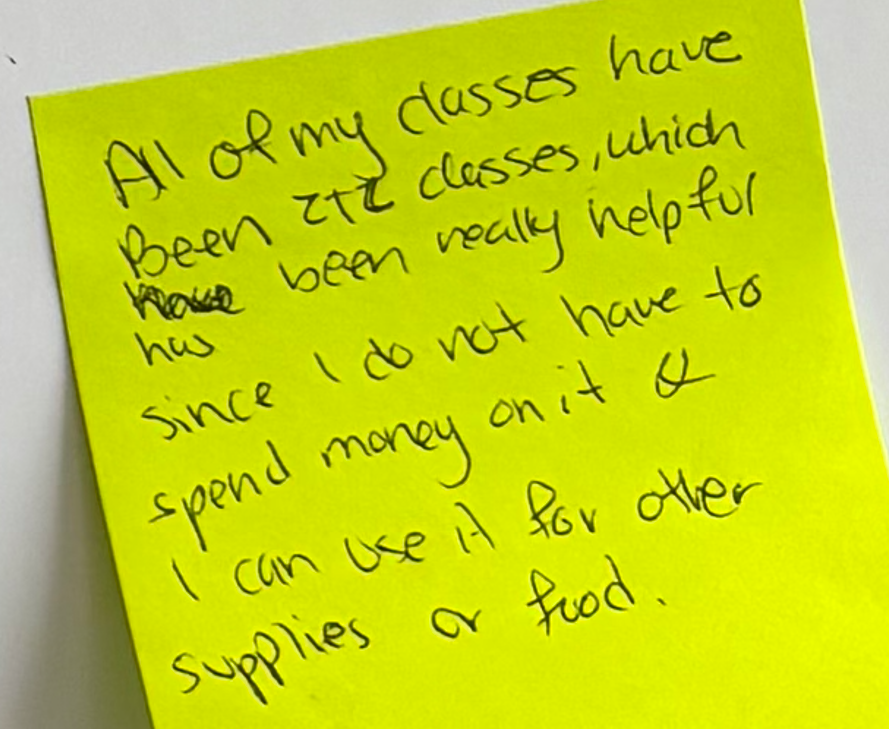 All of my classes have
Been ZTC classes, which
been really helpful
has
since I do not have to
spend money on it &
I can use it for other
supplies or food.